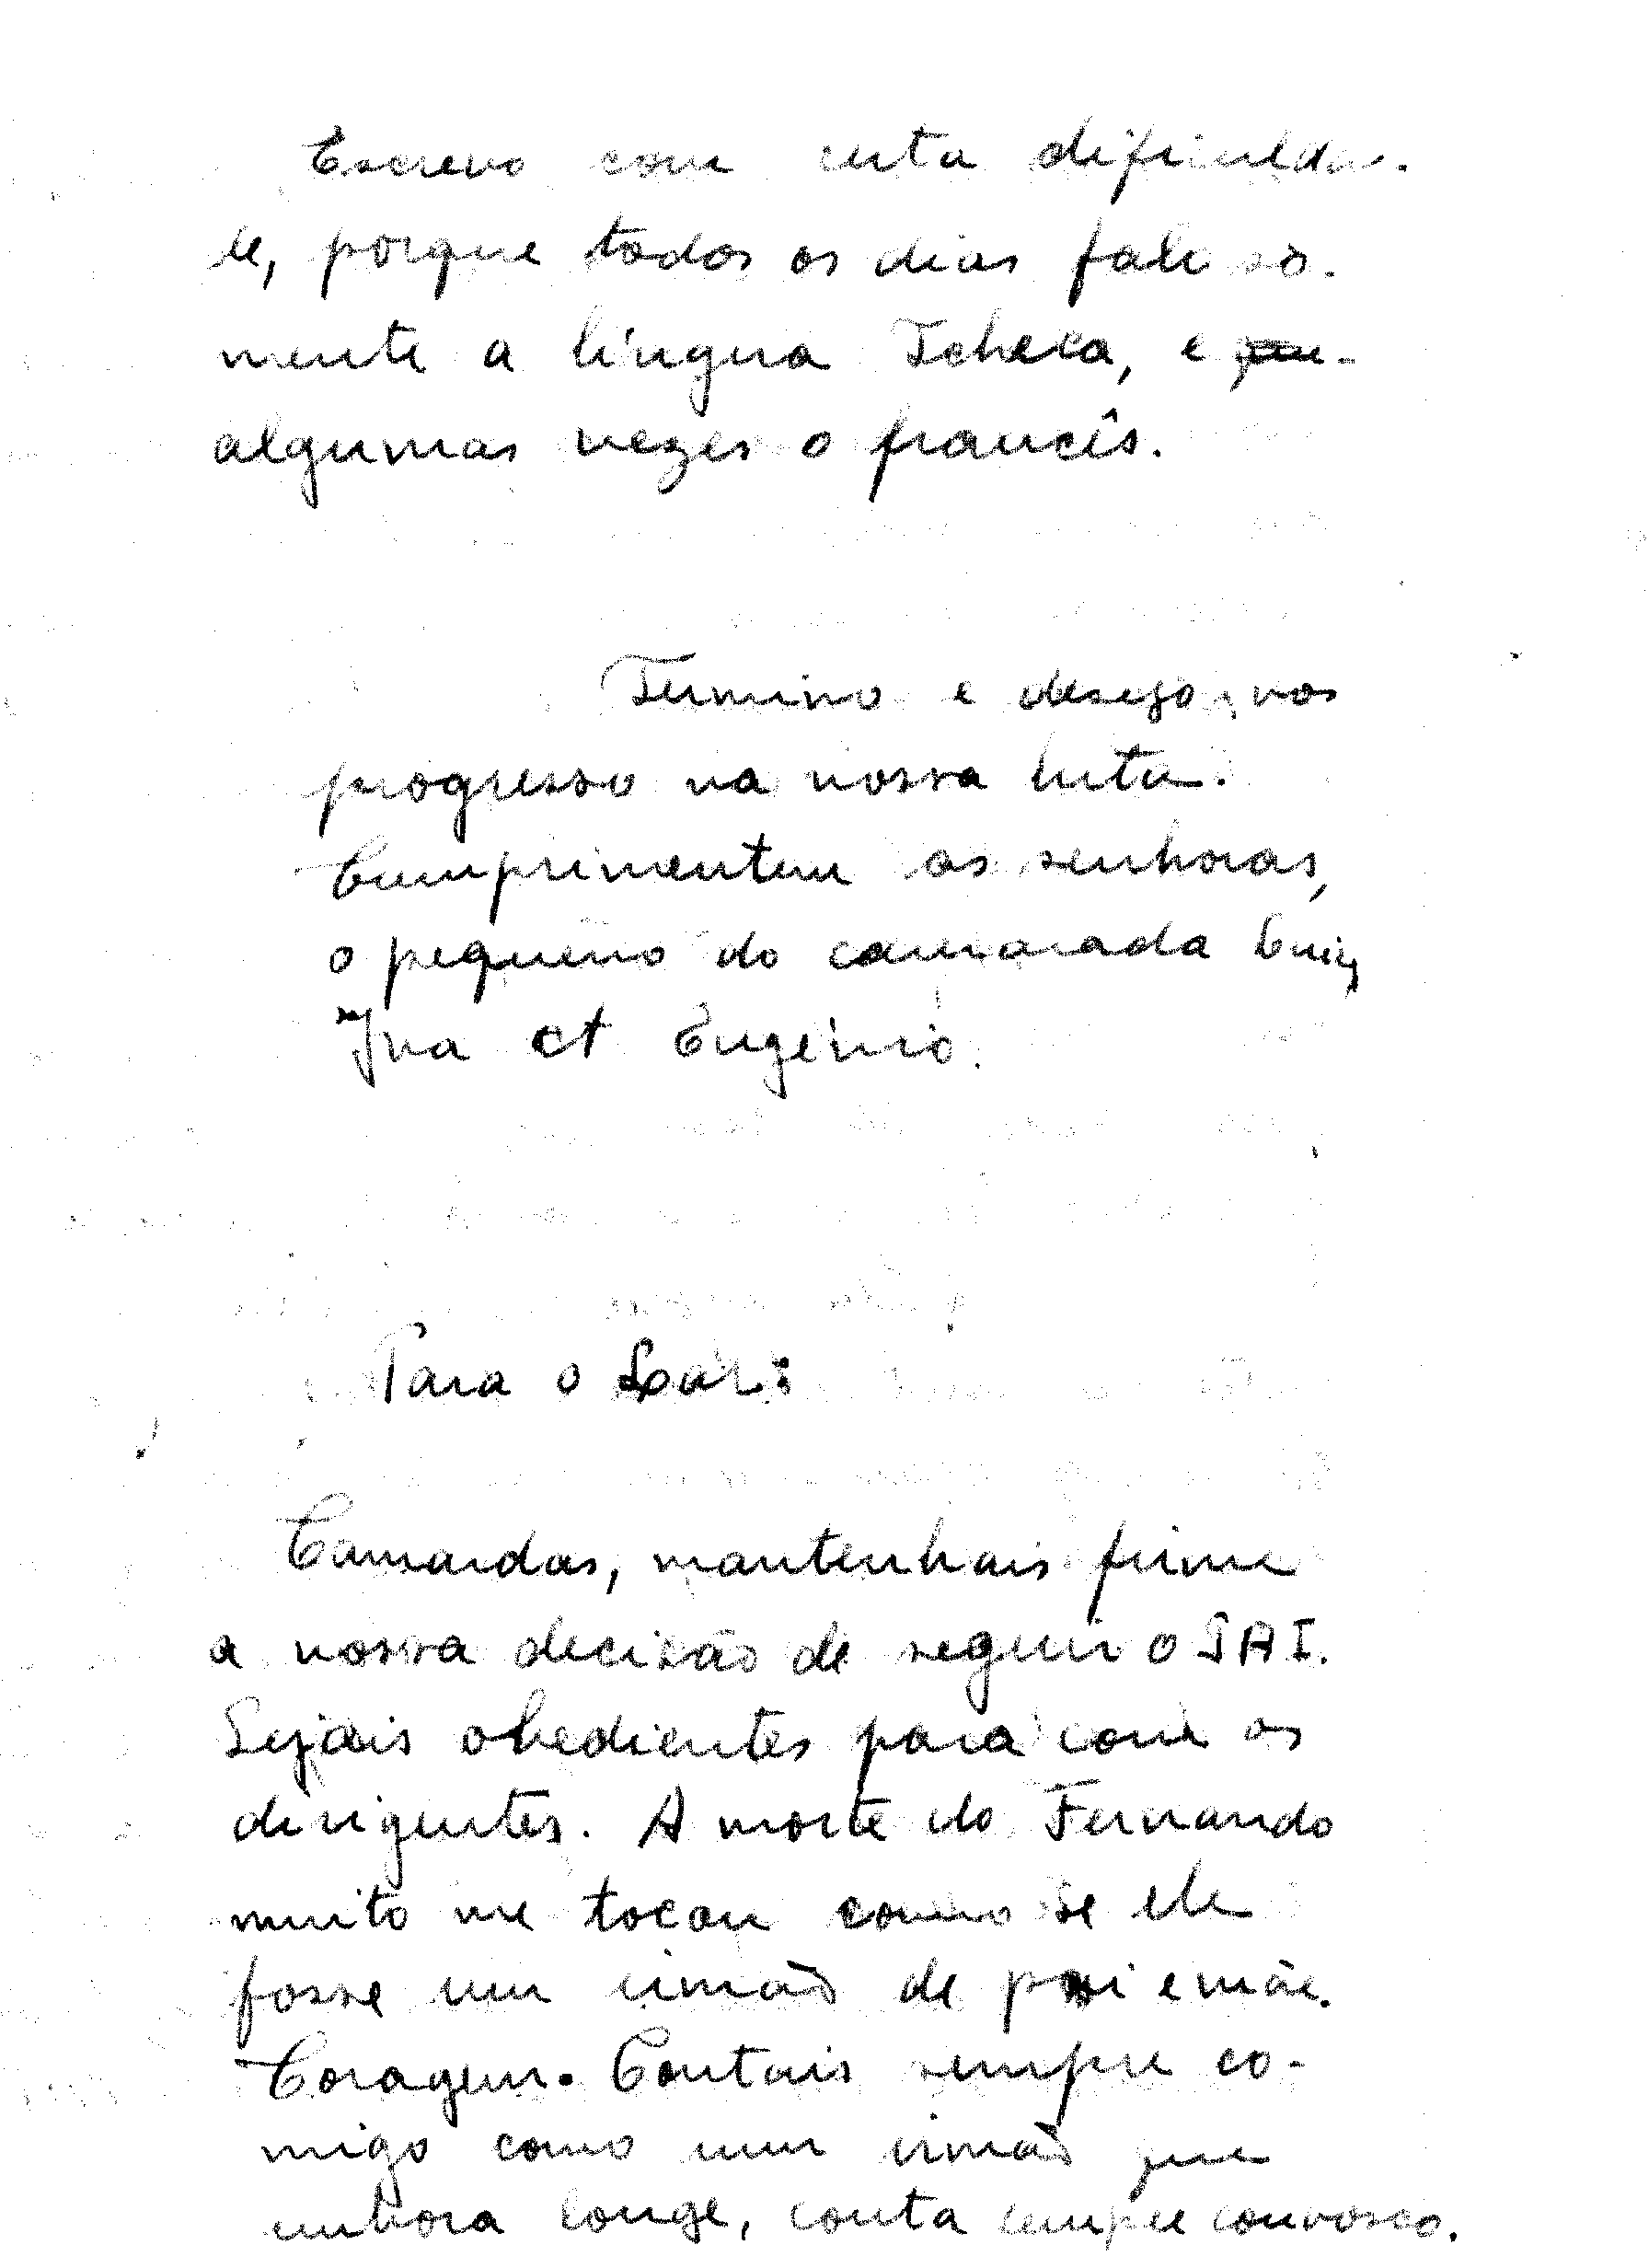 Escrevo com certa dificulda-
de, porque todos os dias falo so-
mente a língua Tcheca, e
algumas vezes o francês.
Termino e desejo-vos
progresso na nossa luta.
Cumprimentem as senhoras,
o pequeno do camarada Luiz,
Iva et Eugénio.
Para o Lar:
Camaradas, mantenhais firme
a nossa decisão de seguir o PAI.
Sejais obedientes para com os
dirigentes. A morte do Fernando
muito me tocou como se ele
fosse um irmão de pai e mãe.
Coragem. Contais sempre co-
migo como um irmão que
embora longe, conta sempre convosco.